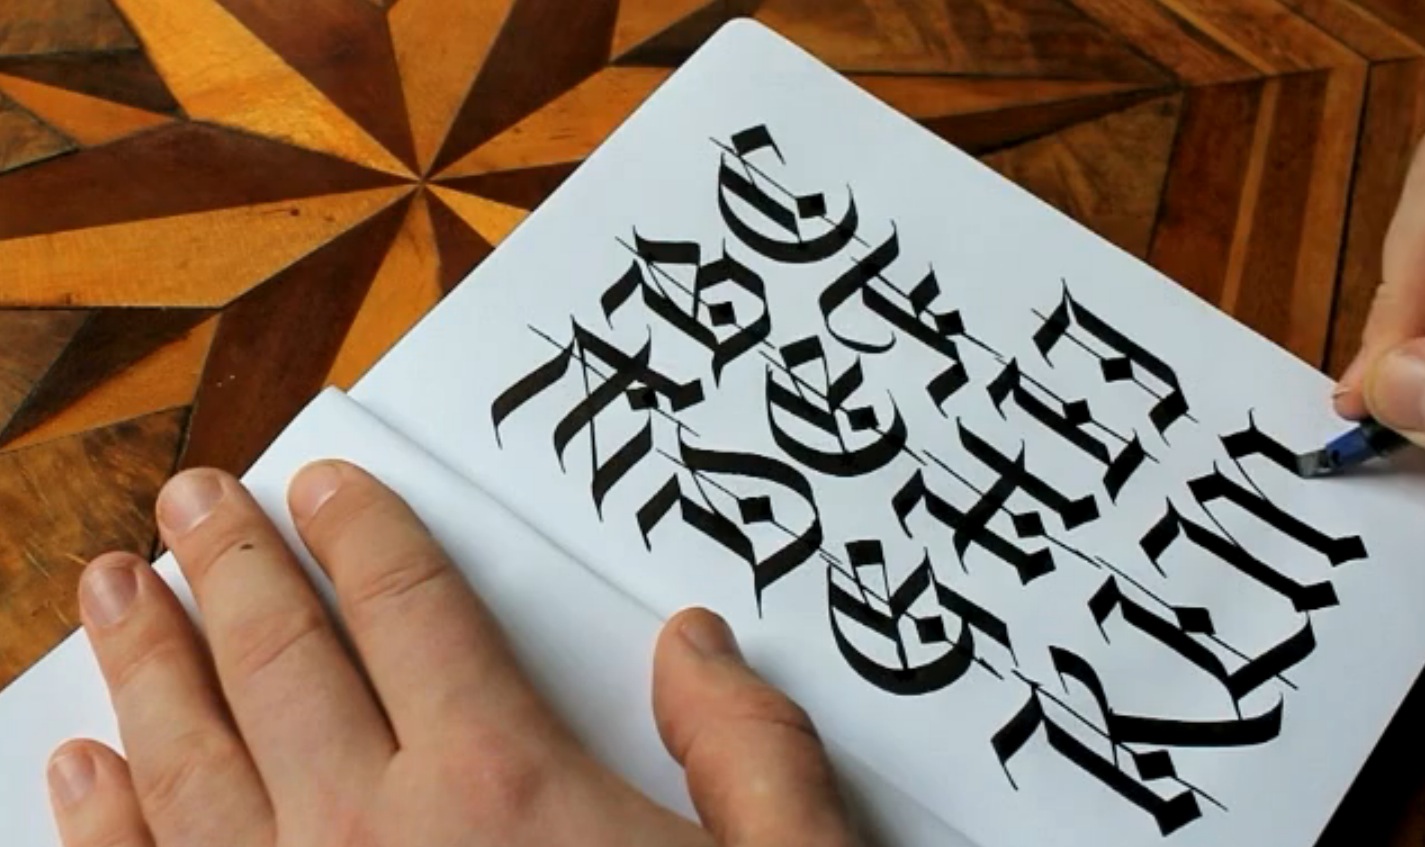 A B C
D E F
G H I J
K L M